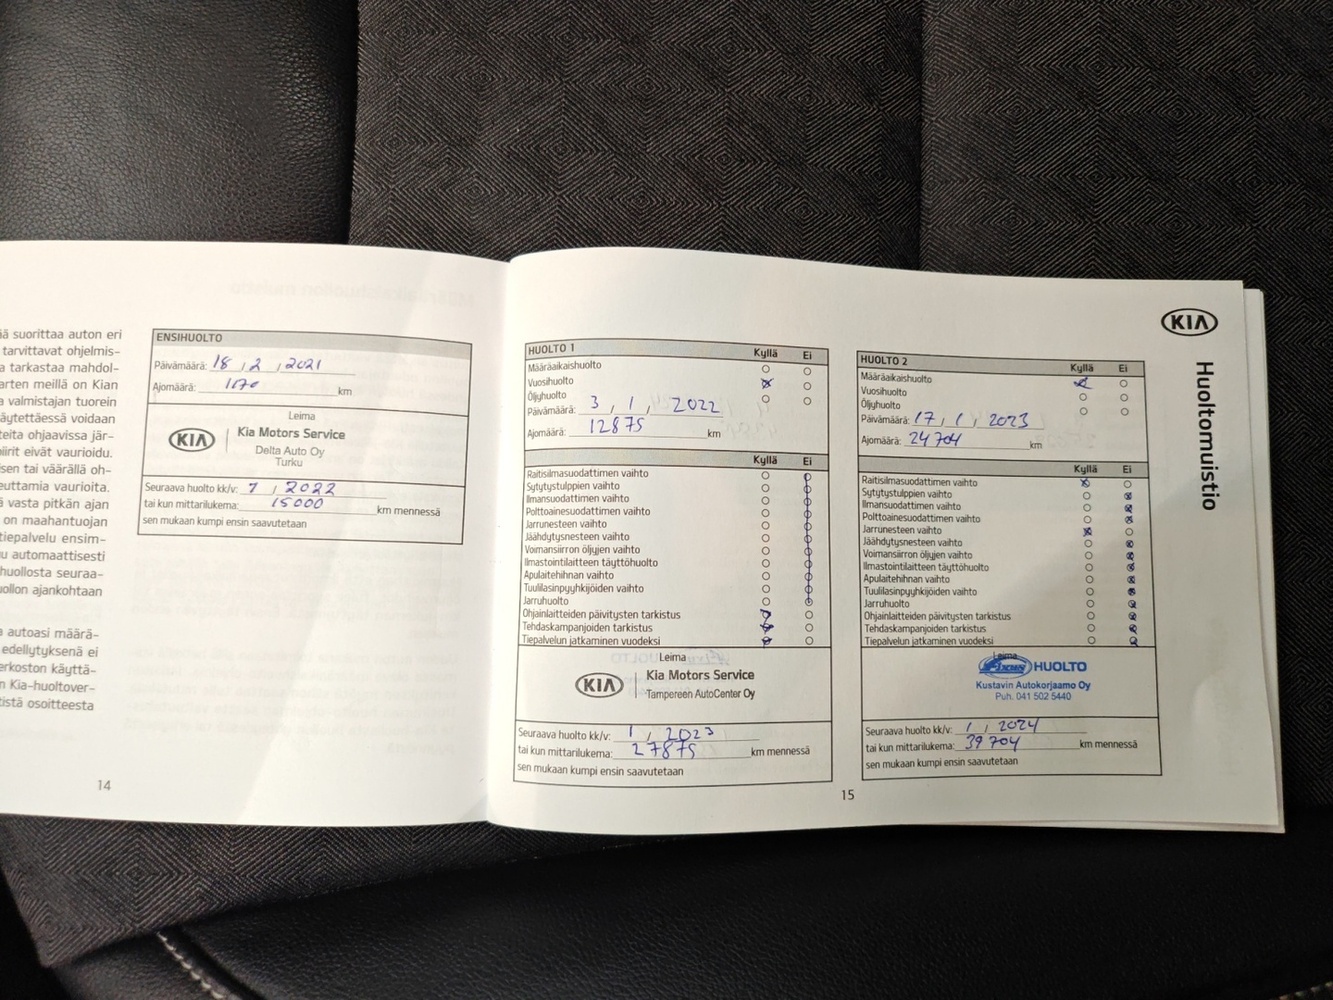 ää suorittaa auton eri
tarvittavat ohjelmis-
a tarkastaa mahdol-
arten meillä on Kian
a valmistajan tuorein
äytettäessä voidaan
teita ohjaavissa jär-
iirit eivät vaurioidu.
isen tai väärällä oh-
euttamia vaurioita.
ä vasta pitkän ajan
on maahantuojan
tiepalvelu ensim-
u automaattisesti
huollosta seuraa-
uollon ajankohtaan
a autoasi määrä-
edellytyksenä ei
erkoston käyttä-
n Kia-huoltover-
tistä osoitteesta
14
ENSIHUOLTO
Päivämäärä: 18 , 2 , 2021
Ajomäärä: km
Leima
KIA Kia Motors Service
Delta Auto Oy
Turku
Seuraava huolto kk/v: 7 , 2022
tai kun mittarilukema: 15000 km mennessä
sen mukaan kumpi ensin saavutetaan
HUOLTO 1 Kyllä Ei
Määräaikaishuolto
Vuosihuolto
Öljyhuolto
Päivämäärä: 3 , 1 , 2022
Ajomäärä: 12875 km
Kyllä Ei
Raitisilmasuodattimen vaihto
Sytytystulppien vaihto
Ilmansuodattimen vaihto
Polttoainesuodattimen vaihto
Jarrunesteen vaihto
Jäähdytysnesteen vaihto
Voimansiirron öljyjen vaihto
Ilmastointilaitteen täyttöhuolto
Apulaitehihnan vaihto
Tuulilasinpyyhkijöiden vaihto
Jarruhuolto
Ohjainlaitteiden päivitysten tarkistus
Tehdaskampanjoiden tarkistus
Tiepalvelun jatkaminen vuodeksi
Leima
KIA Kia Motors Service
Tampereen AutoCenter Oy
Seuraava huolto kk/v: 1 , 2023
tai kun mittarilukema: 27875 km mennessä
sen mukaan kumpi ensin saavutetaan
HUOLTO 2 Kyllä Ei
Määräaikaishuolto
Vuosihuolto
Öljyhuolto
Päivämäärä: 17 , 1 , 2023
Ajomäärä: 24704 km
Kyllä Ei
Raitisilmasuodattimen vaihto
Sytytystulppien vaihto
Ilmansuodattimen vaihto
Polttoainesuodattimen vaihto
Jarrunesteen vaihto
Jäähdytysnesteen vaihto
Voimansiirron öljyjen vaihto
Ilmastointilaitteen täyttöhuolto
Apulaitehihnan vaihto
Tuulilasinpyyhkijöiden vaihto
Jarruhuolto
Ohjainlaitteiden päivitysten tarkistus
Tehdaskampanjoiden tarkistus
Tiepalvelun jatkaminen vuodeksi
Leima
Fixus HUOLTO
Kustavin Autokorjaamo Oy
Puh. 041 502 5440
Seuraava huolto kk/v: 1 , 2024
tai kun mittarilukema: 39704 km mennessä
sen mukaan kumpi ensin saavutetaan
15
KIA
Huoltomuistio